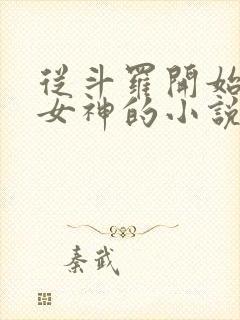 從斗羅開始
女神的小說
秦武